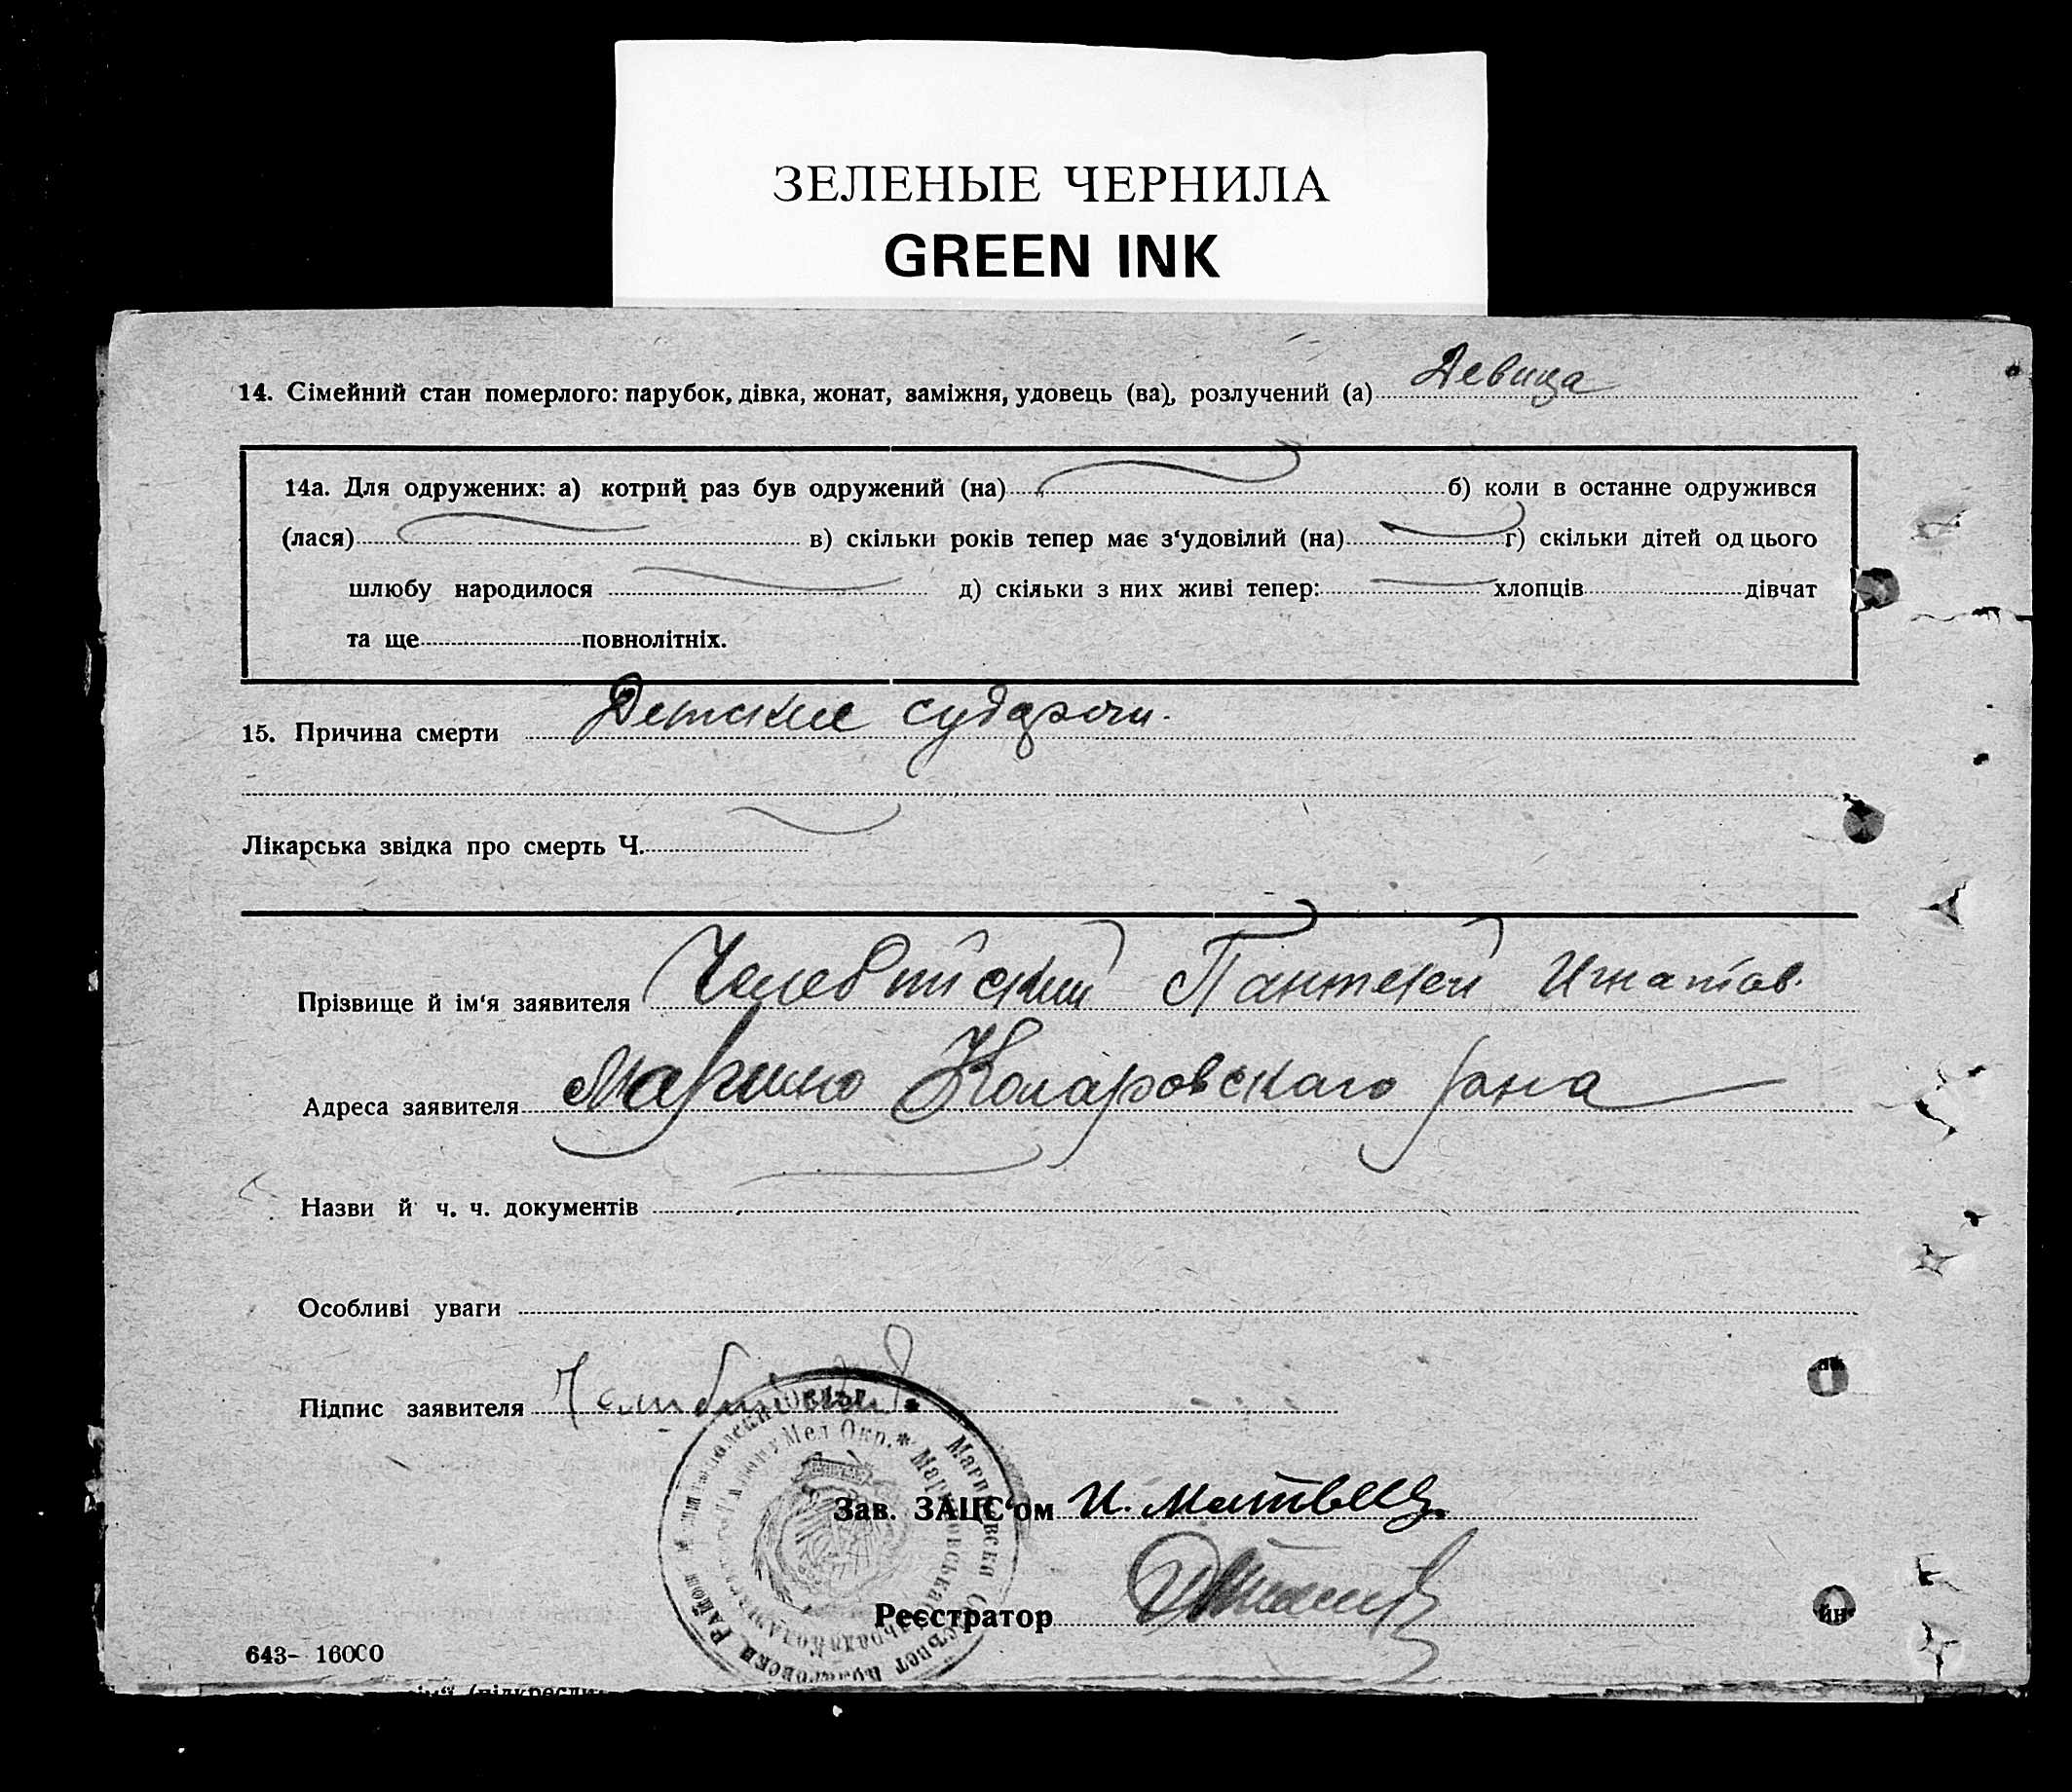 ЗЕЛЕНЫЕ ЧЕРНИЛА
GREEN INK
14. Сімейний стан померлого: парубок, дівка, жонат, заміжня, удовець (ва), розлучений (а) Девица
14а. Для одружених: а) котрий раз був одружений (на) б) коли в останне одружився
(лася) в) скільки років тепер має з‘удовілий (на) г) скільки дітей од цього
шлюбу народилося д) скільки з них живі тепер: хлопців дівчат
та ще повнолітніх.
15. Причина смерти Детские
Лікарська звідка про смерть Ч.
Прізвище й ім‘я заявителя Пантелей Игнатов.
Адреса заявителя Марино Коларовскаго
Назви й ч. ч. документів
Особливі уваги
Підпис заявителя
Мел Окр. *
Зав. ЗАЦС‘ом И.
Реєстратор
643- 16000